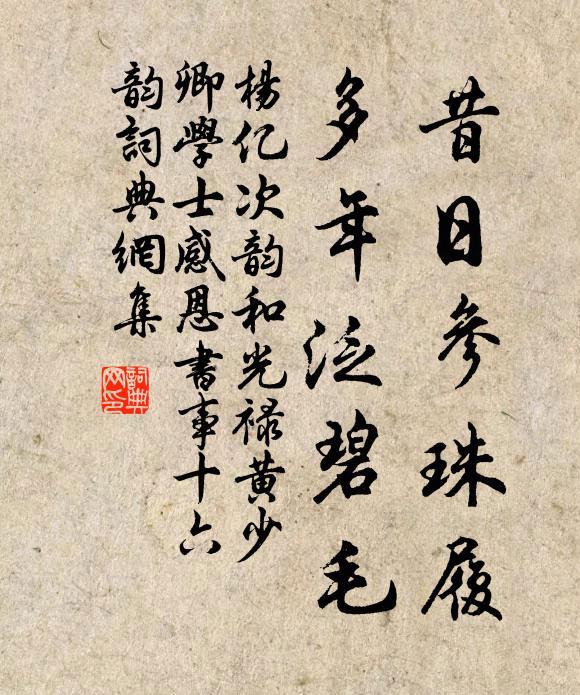 昔日參珠履
多年泛碧毛
楊亿次韵和光禄黄少
卿學士感恩書事十六
韵詞典網集
詞典
网印